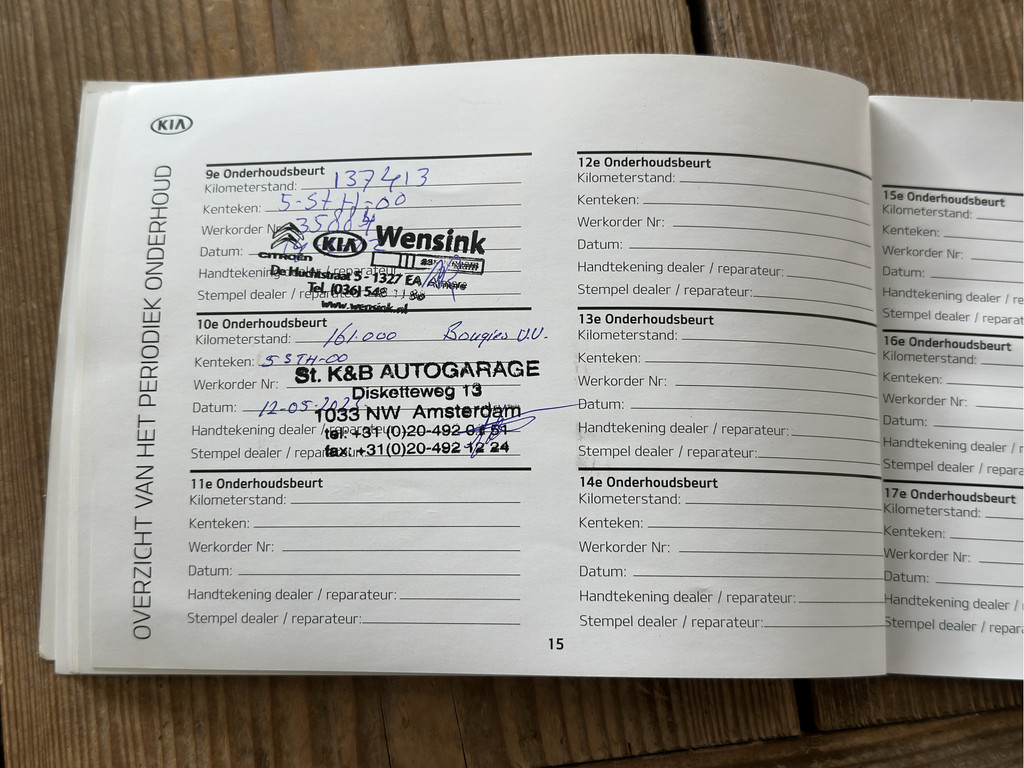 KIA
OVERZICHT VAN HET PERIODIEK ONDERHOUD
9e Onderhoudsbeurt
Kilometerstand: 137413
Kenteken: 5-STH-00
Werkorder Nr:
Datum:
Handtekening dealer / reparateur:
Stempel dealer / reparateur:
CITROËN
KIA
Wensink
De Huchtstraat 5 - 1327 EA
Tel. (036) 548
www.wensink.nl
10e Onderhoudsbeurt
Kilometerstand: 161.000 Bougies V.V.
Kenteken: 5STH-00
Werkorder Nr:
Datum: 12-05-
Handtekening dealer / reparateur:
Stempel dealer / reparateur:
St. K&B AUTOGARAGE
Disketteweg 13
1033 NW Amsterdam
tel: +31 (0)20-492 51
fax: +31(0)20-492 12 24
11e Onderhoudsbeurt
Kilometerstand:
Kenteken:
Werkorder Nr:
Datum:
Handtekening dealer / reparateur:
Stempel dealer / reparateur:
12e Onderhoudsbeurt
Kilometerstand:
Kenteken:
Werkorder Nr:
Datum:
Handtekening dealer / reparateur:
Stempel dealer / reparateur:
13e Onderhoudsbeurt
Kilometerstand:
Kenteken:
Werkorder Nr:
Datum:
Handtekening dealer / reparateur:
Stempel dealer / reparateur:
14e Onderhoudsbeurt
Kilometerstand:
Kenteken:
Werkorder Nr:
Datum:
Handtekening dealer / reparateur:
Stempel dealer / reparateur:
15
15e Onderhoudsbeurt
Kilometerstand:
Kenteken:
Werkorder Nr:
Datum:
Handtekening dealer / re
Stempel dealer / reparat
16e Onderhoudsbeurt
Kilometerstand:
Kenteken:
Werkorder Nr:
Datum:
Handtekening dealer / r
Stempel dealer / repara
17e Onderhoudsbeurt
Kilometerstand:
Kenteken:
Werkorder Nr:
Datum:
Handtekening dealer /
Stempel dealer / repar